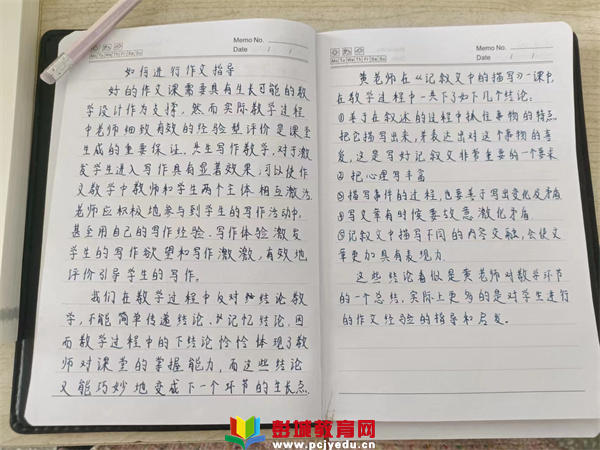 Memo No.
Mo Tu We Th Fr Sa Su
Date / /
如何进行作文指导
好的作文课需要具有生长可能的教
学设计作为支撑。然而实际教学过程
中老师细致有效的经验型评价是课堂
生成的重要保证。共生写作教学,对于激
发学生进入写作具有显著效果,可以使作
文教学中教师和学生两个主体相互激活。
老师应积极地参与到学生的写作活动中,
甚至用自己的写作经验、写作体验激发
学生的写作欲望和写作激激,有效地
评价引导学生的写作。
我们在教学过程中反对结论教
学,不能简单传递结论、记忆结论,因
而教学过程中的下结论恰恰体现了教
师对课堂的掌握能力,而这些结论
又能巧妙地变成下一个环节的生长点。
Memo No.
Mo Tu We Th Fr Sa Su
Date / /
黄老师在《记叙文中的描写》一课中,
在教学过程中一共下了如下几个结论:
①善于在叙述的过程中抓住事物的特点
把它描写出来,并表达出对这个事物的喜
爱,这是写好记叙文非常重要的一个要求
②把心理写丰富
③描写事件的过程,也要善于写出变化及矛盾
④写文章有时候要故意激化矛盾
⑤记叙文中描写不同的内容交融,会使文
章更加具有表现力
这些结论看似是黄老师对教学环节
的一个总结,实际上更多的是对学生进行
的作文经验的指导和启发。
彭城教育网
www.pcjyedu.cn